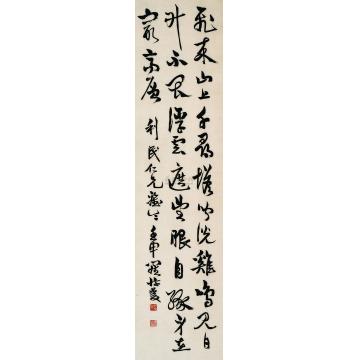 飛來山上千尋塔聞說雞鳴見日
升不畏浮雲遮望眼自緣身在
最高層
利民仁兄 壬申